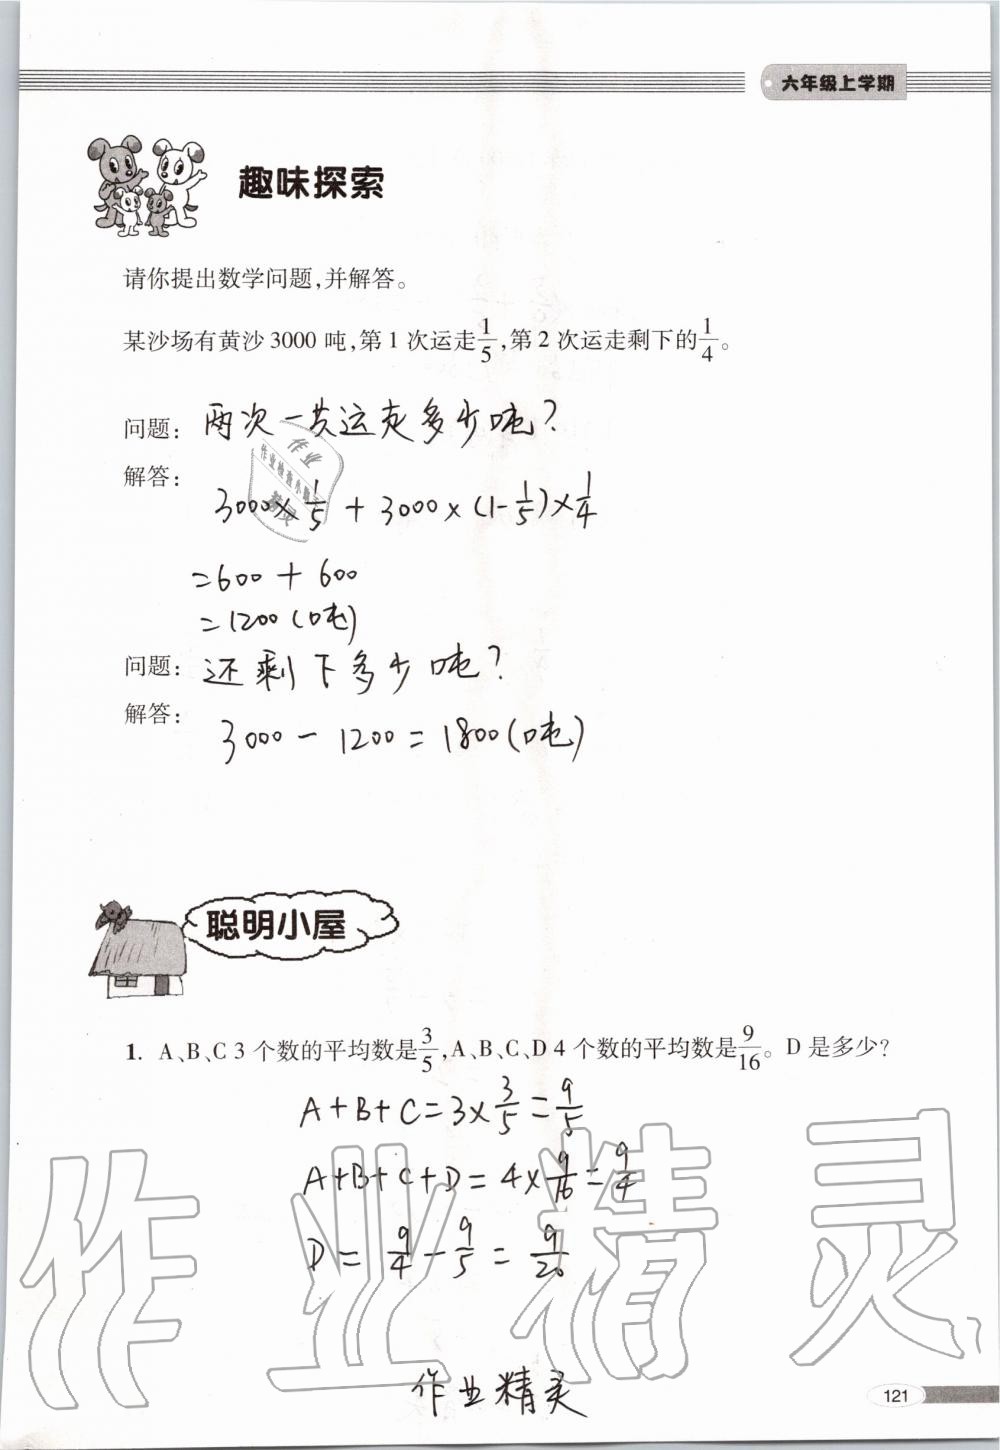 六年级上学期
趣味探索
请你提出数学问题,并解答。
某沙场有黄沙 3000 吨,第 1 次运走1/5,第 2 次运走剩下的1/4。
问题: 两次一共运走多少吨?
解答:
3000×1/5+3000×(1-1/5)×1/4
=600+600
=1200(吨)
问题: 还剩下多少吨?
解答:
3000-1200=1800(吨)
作业
作业检查小助手
精灵
聪明小屋
1. A、B、C 3 个数的平均数是3/5,A、B、C、D 4 个数的平均数是9/16。D 是多少?
A+B+C=3×3/5=9/5
A+B+C+D=4×9/16=9/4
D=9/4-9/5=9/20
作业精灵
作业精灵
121